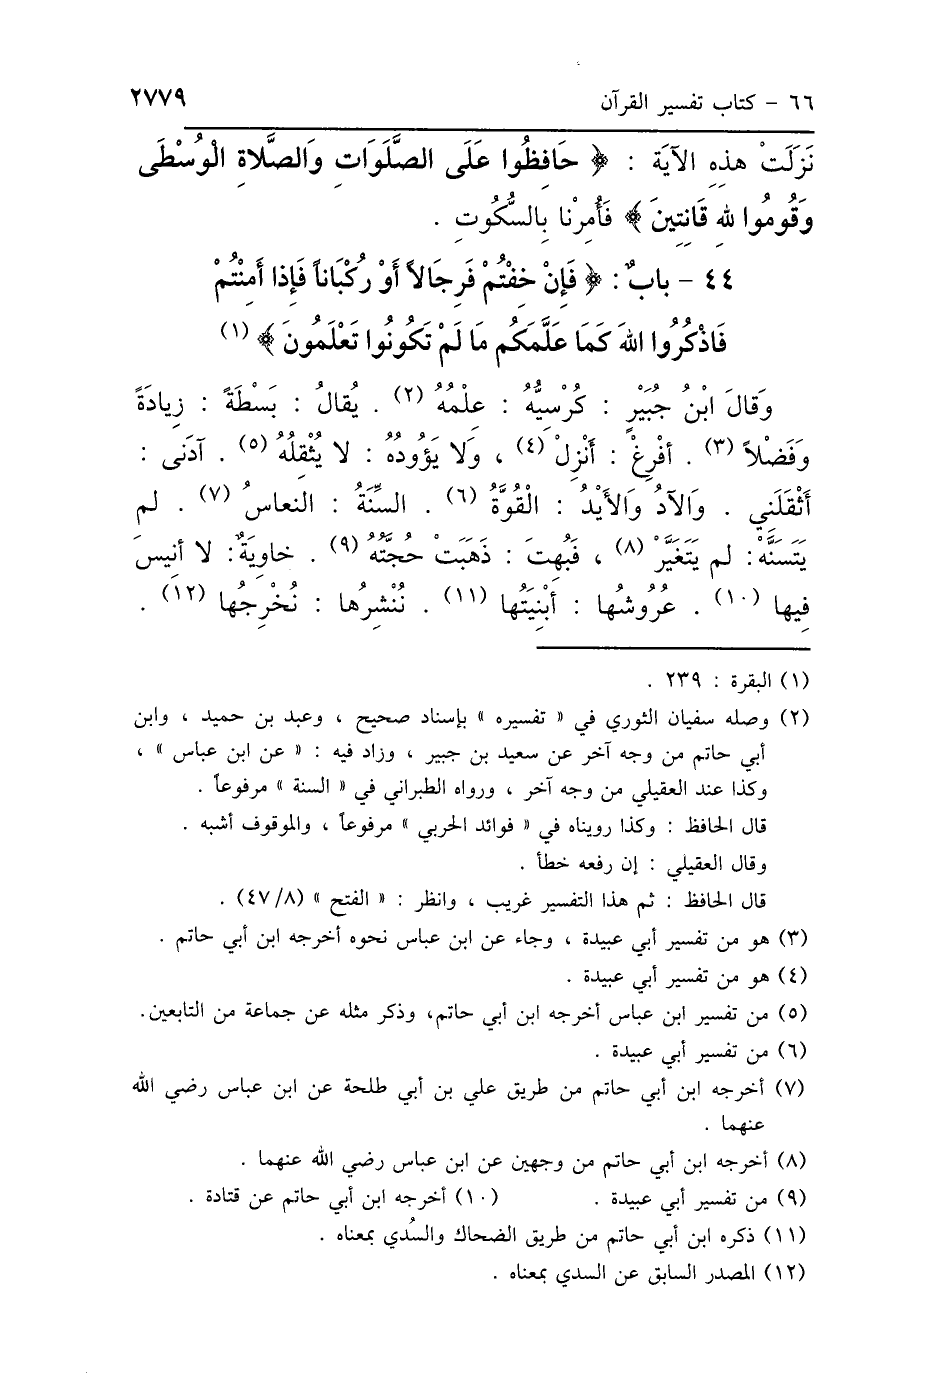 ٦٦ - كتاب تفسير القرآن ٢٧٧٩
نَزَلَتْ هذِهِ الآيَةَ : ﴿ حَافِظُوا عَلَى الصَّلَوَاتِ وَالصَّلَاةِ الْوُسْطَى
وَقُومُوا للهِ قَانِتِينَ ﴾ فَأُمِرْنا بِالسُّكُوتِ .
٤٤ - بابٌ : ﴿ فَإِنْ خِفْتُمْ فَرِجَالاً أَوْ رُكْبَاناً فَإِذا أَمِنْتُمْ
فَاذْكُرُوا اللهَ كَمَا عَلَّمَكُم مَا لَمْ تَكُونُوا تَعْلَمُونَ ﴾ (١)
وَقالَ ابْنُ جُبَيْرٍ : كُرْسِيُّهُ : عِلْمُهُ (٢) . يُقالُ : بَسْطَةً : زِيادَةً
وَفَضْلاً (٣) . أَفْرِغْ : أَنْزِلْ (٤) ، وَلا يَؤُودُهُ : لا يُثْقِلُهُ (٥) . آدَنَى :
أَثْقَلَنِي . وَالآدُ وَالأَيْدُ : الْقُوَّةُ (٦) . السِّنَةُ : النعاسُ (٧) . لم
يَتَسَنَّهْ : لم يَتَغَيَّرْ (٨) ، فَبُهِتَ : ذَهَبَتْ حُجَّتُهُ (٩) . خاوِيَةٌ : لا أَنِيسَ
فِيها (١٠) . عُرُوشُها : أَبْنِيَتُها (١١) . نُنْشِرُها : نُخْرِجُها (١٢) .
(١) البقرة : ٢٣٩ .
(٢) وصله سفيان الثوري في « تفسيره » بإسناد صحيح ، وعبد بن حميد ، وابن
أبي حاتم من وجه آخر عن سعيد بن جبير ، وزاد فيه : « عن ابن عباس » ،
وكذا عند العقيلي من وجه آخر ، ورواه الطبراني في « السنة » مرفوعاً .
قال الحافظ : وكذا رويناه في « فوائد الحربي » مرفوعاً ، والموقوف أشبه .
وقال العقيلي : إن رفعه خطأ .
قال الحافظ : ثم هذا التفسير غريب ، وانظر : « الفتح » (٤٧/٨) .
(٣) هو من تفسير أبي عبيدة ، وجاء عن ابن عباس نحوه أخرجه ابن أبي حاتم .
(٤) هو من تفسير أبي عبيدة .
(٥) من تفسير ابن عباس أخرجه ابن أبي حاتم، وذكر مثله عن جماعة من التابعين.
(٦) من تفسير أبي عبيدة .
(٧) أخرجه ابن أبي حاتم من طريق علي بن أبي طلحة عن ابن عباس رضي الله
عنهما .
(٨) أخرجه ابن أبي حاتم من وجهين عن ابن عباس رضي الله عنهما .
(٩) من تفسير أبي عبيدة . (١٠) أخرجه ابن أبي حاتم عن قتادة .
(١١) ذكره ابن أبي حاتم من طريق الضحاك والسُدي بمعناه .
(١٢) المصدر السابق عن السدي بمعناه .